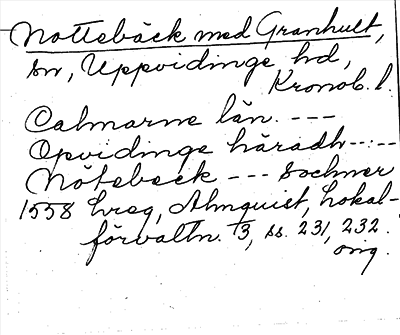 Nottebäck med Granhult,
sn, Uppvidinge hd,
Kronob. l.
Calmarne län. ---
Opvidinge häradh --:--
Nötebeck --- sochner
1558 hreg, Almquist, Lokal-
förvaltn. 3, ss. 231, 232.
orig.